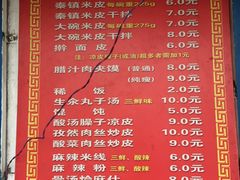 秦镇米皮 每碗重225g 6.0元
秦镇米皮干拌 7.0元
大碗米皮 每碗重275g 7.0元
大碗米皮干拌 8.0元
擀面皮 6.0元
腊汁肉夹馍 (普通) 8.0元
(纯瘦) 9.0元
稀饭 2.0元
生汆丸子汤 三鲜味 10.0元
馄饨 5.0元
酸汤臊子凉皮 9.0元
孜然肉丝炒皮 10.0元
酸菜肉丝炒皮 9.0元
麻辣米线 三鲜、酸辣 6.0元
麻辣粉 三鲜、酸辣 6.0元